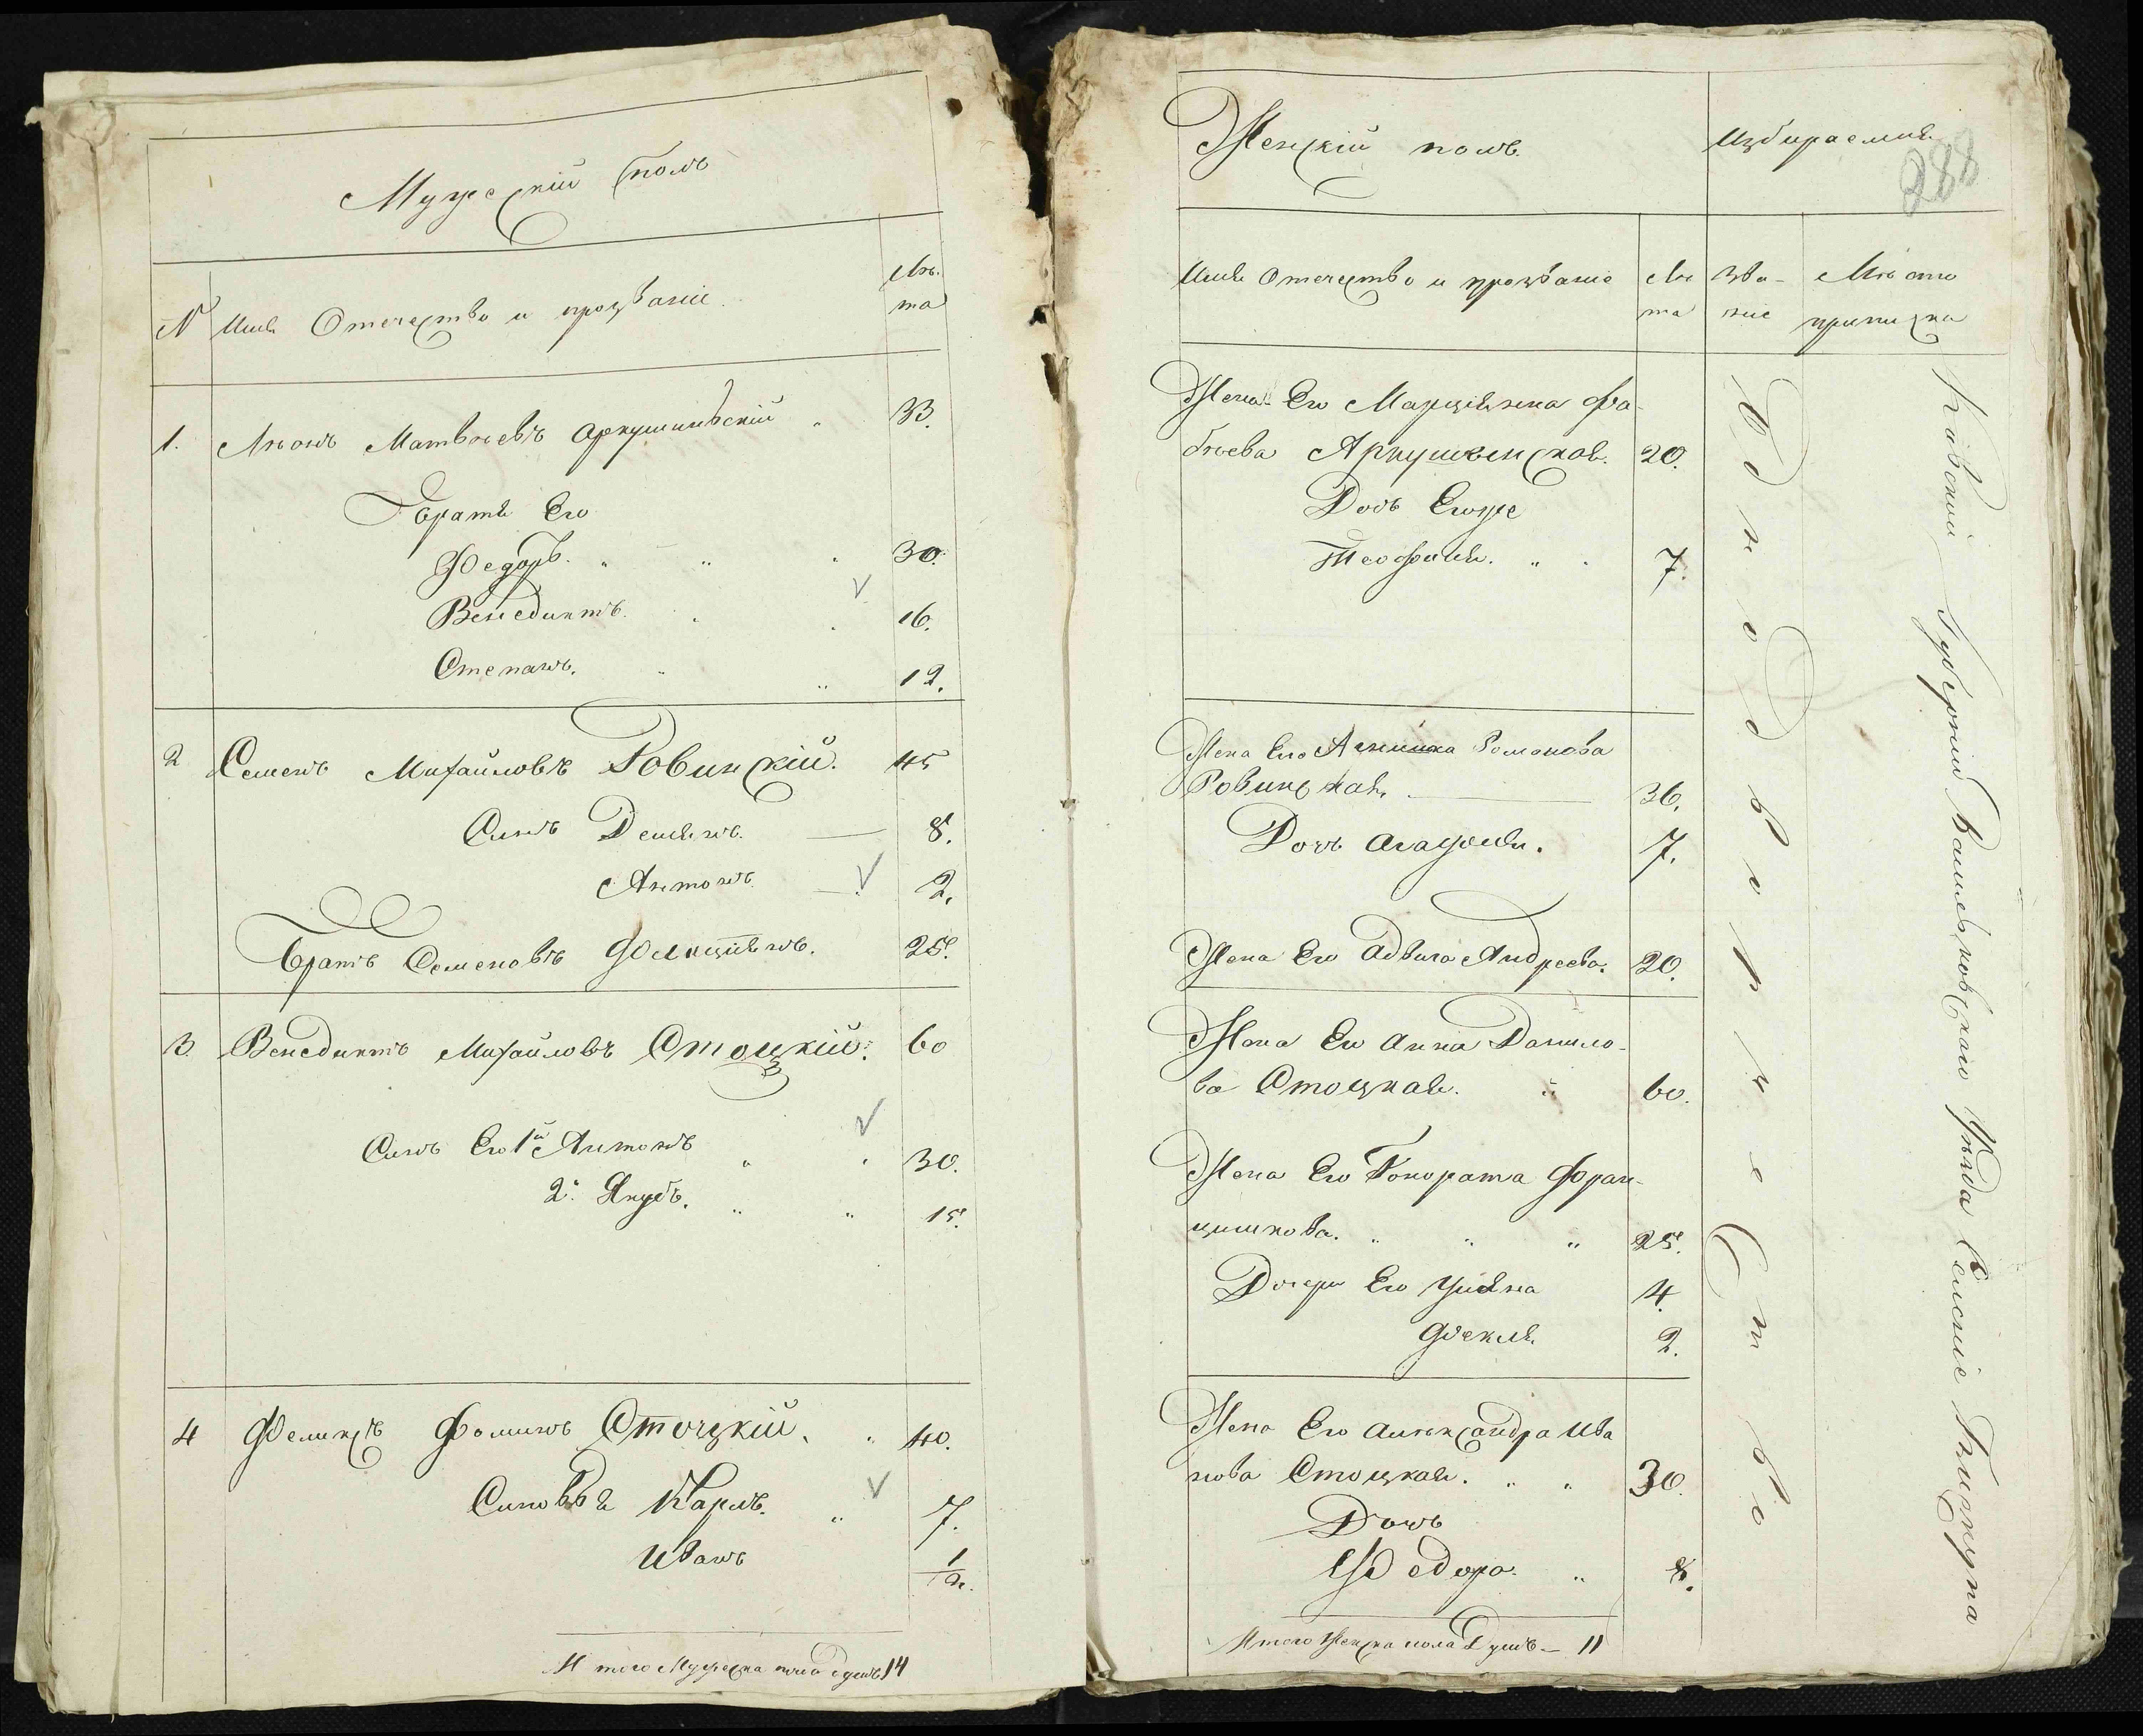 Мужескій полъ
№ Имя Отечество и прозваніе Лѣта
1. Леонъ Матвѣевъ Аркушинскій 33.
Братя Его
Федоръ 30.
Венедиктъ 16.
Степанъ. 12.
2 Семенъ Михайловъ Ровинскій. 45
Синъ Демянъ 8.
Антонъ 2.
Братъ Семеновъ Фелиціянъ. 25.
3. Венедиктъ Михайловъ Стоцкій. 60
Синъ Его 1й Антонъ 30.
2й Якубъ. 15.
4 Феликсъ Фоминъ Стоцкій. 40.
Синовья Карлъ. 7.
Иванъ 1/2.
Итого Мужеска пола душъ 14
Женскій полъ.
Избираемыя
288
Имя Отечество и прозваніе Лѣта
Званіе
Мѣсто
приписки
Жена Его Марціянна Фа-
бѣева Аркушинская. 20.
Дочь Егоже
Теофиля. 7.
Жена Его Романова
Ровинская 36.
Дочь Агафия. 7.
Жена Его Адвига Андреева. 20.
Жена Его Анна Данило-
ва Стоцкая. 60.
Жена Его Гонората Фран-
цишкова. 25.
Дочери Его Уліяна 4.
Фекля 2.
Жена Его Александра Ива
нова Стоцкая. 30.
Дочь
Федора. 8.
Итого Женска пола Душъ 11
Однодворческтво
Кіевской Губерніи Васильковскаго Уѣзда Селеніе Пинчуки